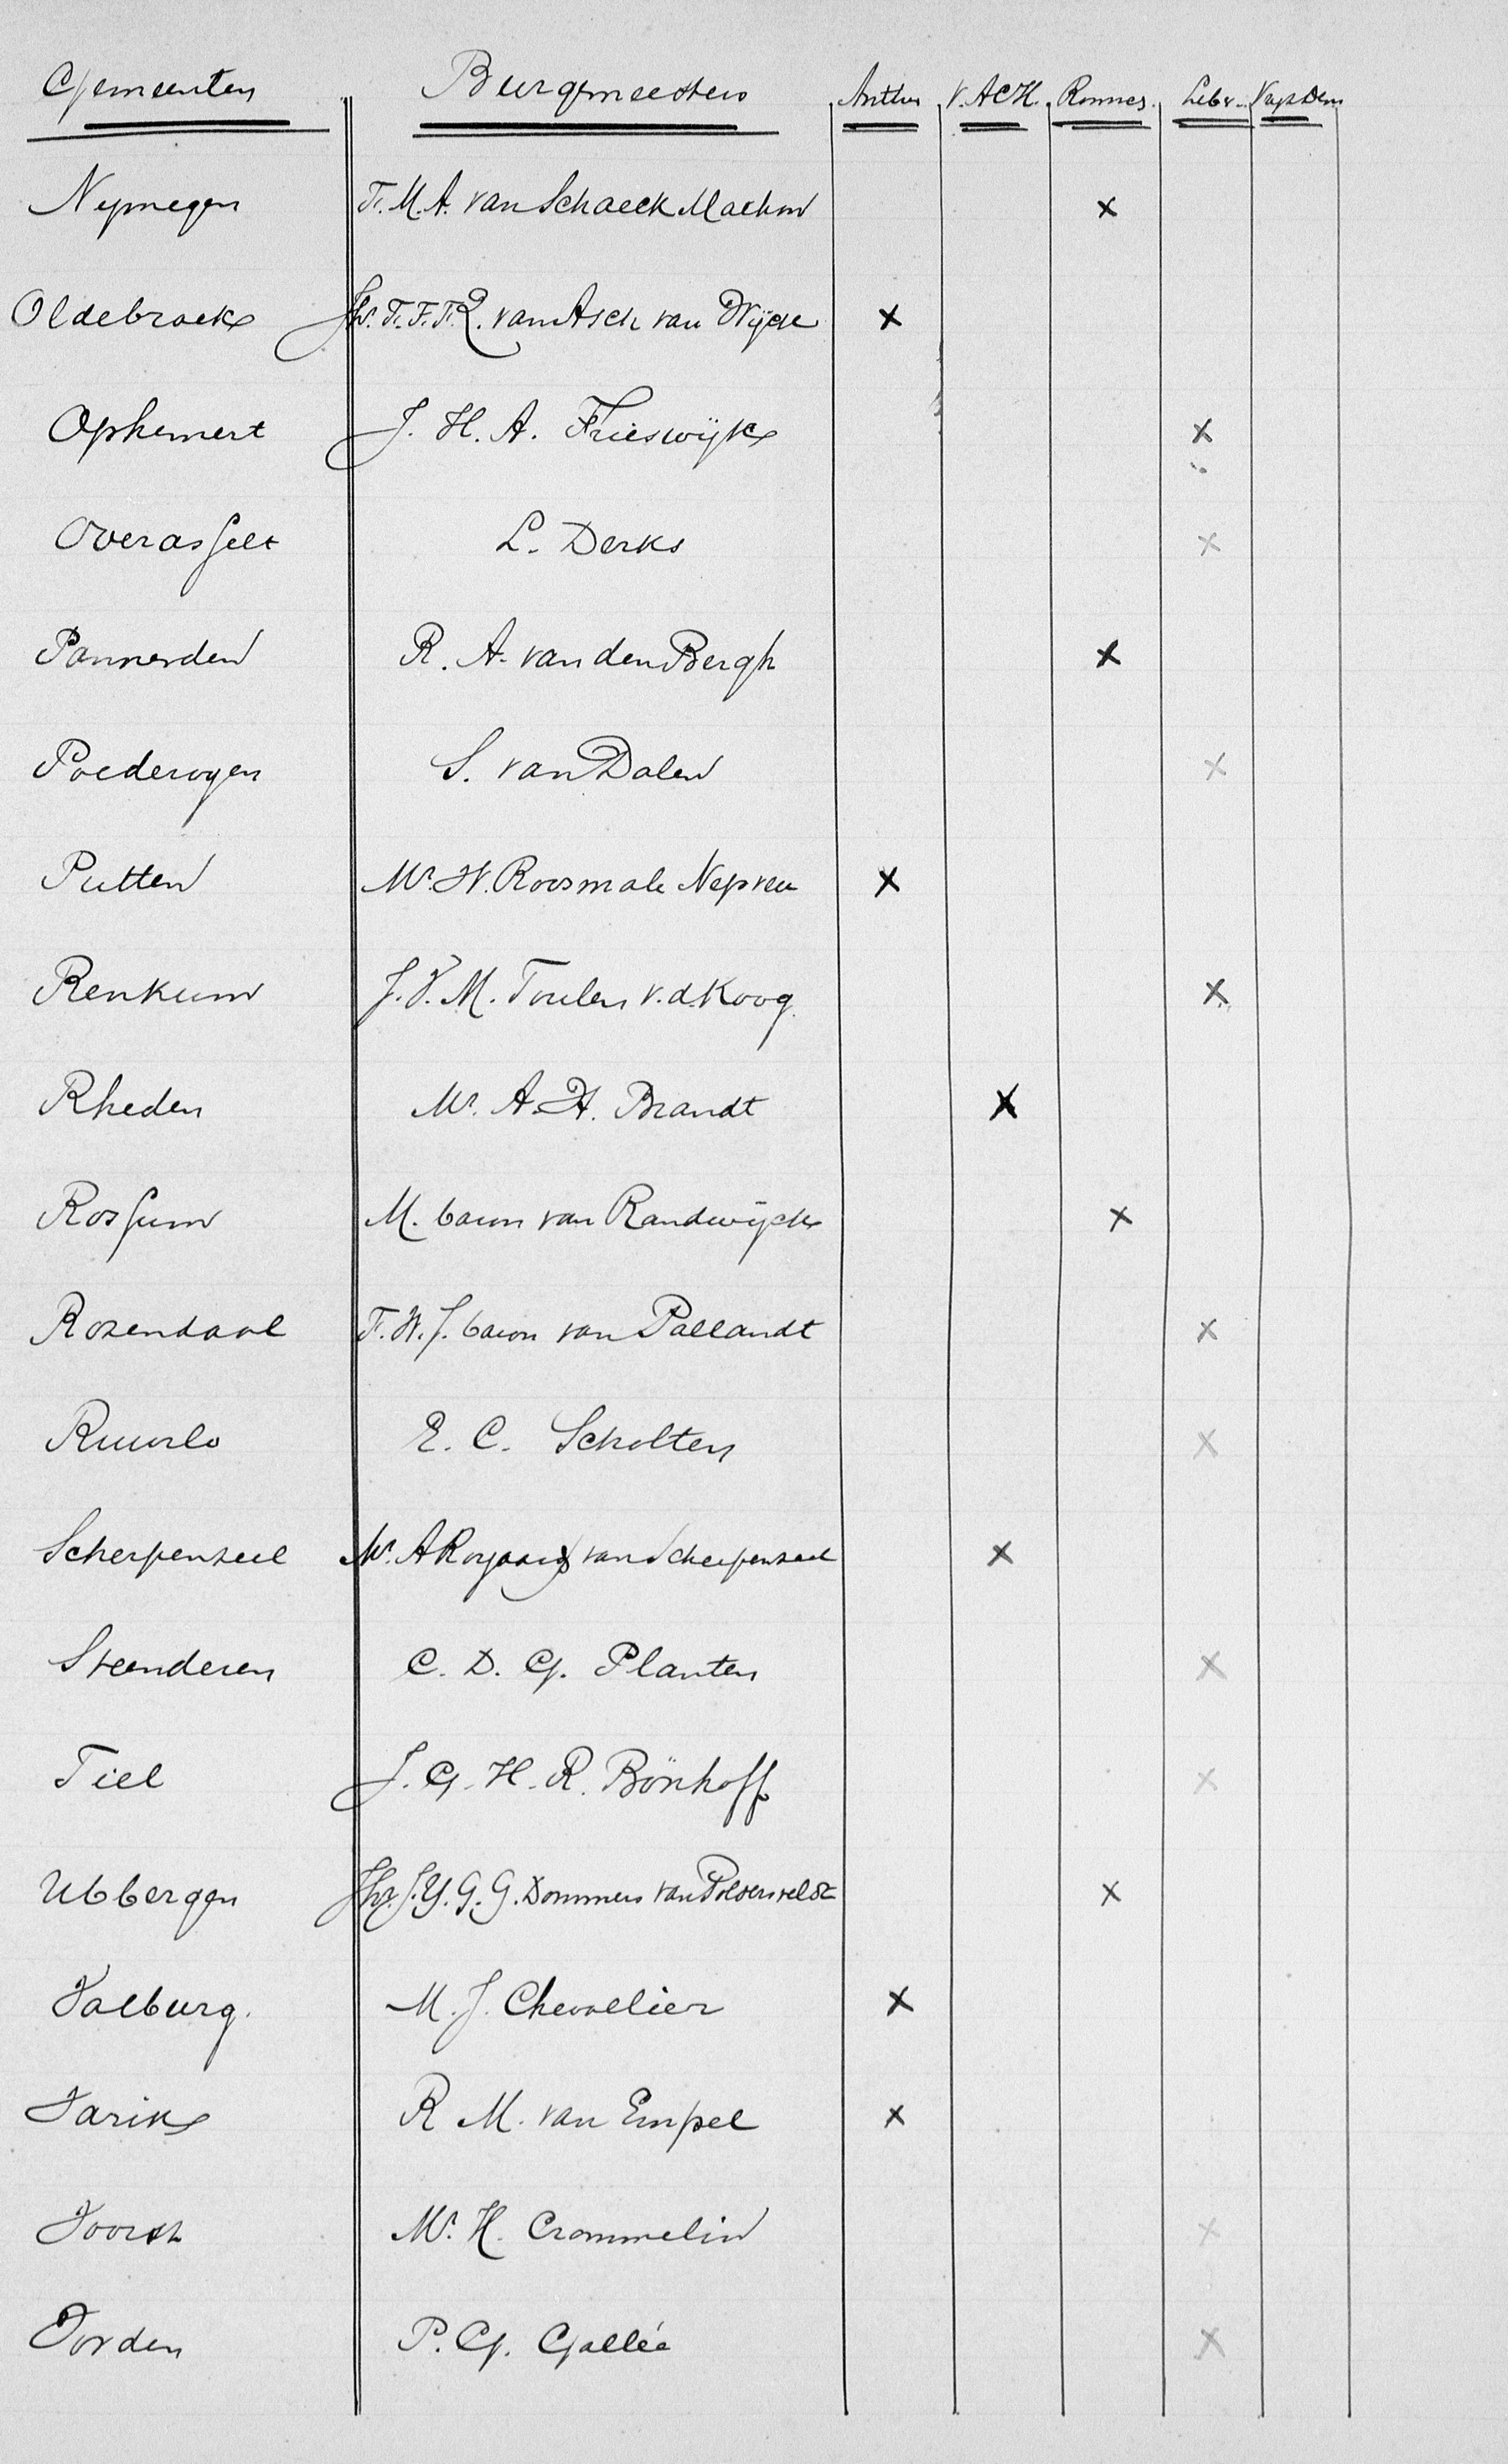 Gemeenten Burgemeesters Antther V. ACH. Ronnes. Libr. Vryz Dem
Nymegen F. M. A. van Schaeck Mathon x
Oldebroek Jhr. F. F. F. R. van Asch van Wijck x
Ophemert J. H. A. Frieswijk x
Overasselt L. Derks x
Pannerden R. A. van den Bergh x
Poederoyen S. van Dalen x
Putten Mr. W. Roosmale Nepveu x
Renkum J. V. M. Toulen v. d. Koog x
Rheden Mr. A. H. Brandt x
Rossum M. baron van Randwijck x
Rozendaal F. W. J. baron van Pallandt x
Ruurlo E. C. Scholten x
Scherpenzeel Mr. A Royaards van Scherpenzeel x
Steenderen C. D. G. Planten x
Tiel J. G. H. R. Bönhoff x
Ubbergen Jhr. J. Y. G. G. Dommers van Poldersveldt x
Valburg. M. J. Chevallier x
Varik R M. van Empel x
Voorst Mr. H. Crommelin x
Vorden P. G. Gallée x